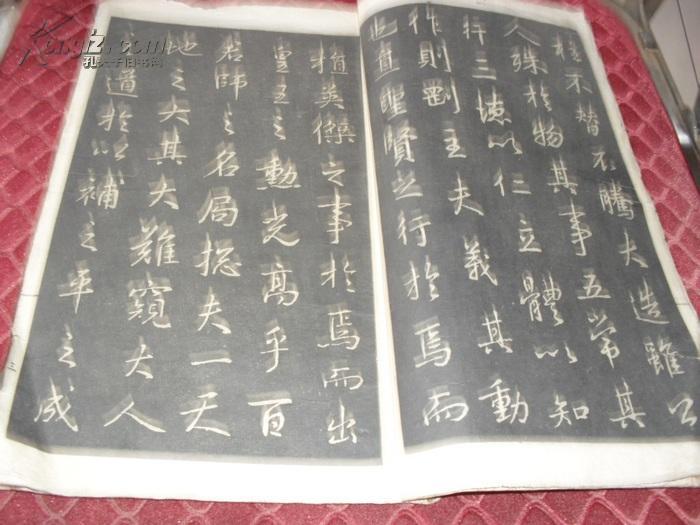 權不替不騰大造雖公
人殊於物其事五常其
將三德以仁立體以知
作則剛主夫義其動
也直聖賢之行於焉而
植英傑之事於焉而出
皇王之勳光高乎百
君師之名局總夫一天
地之大其大難窺大人
之道於以補之平之成
三
Kongfz.com
孔夫子旧书网